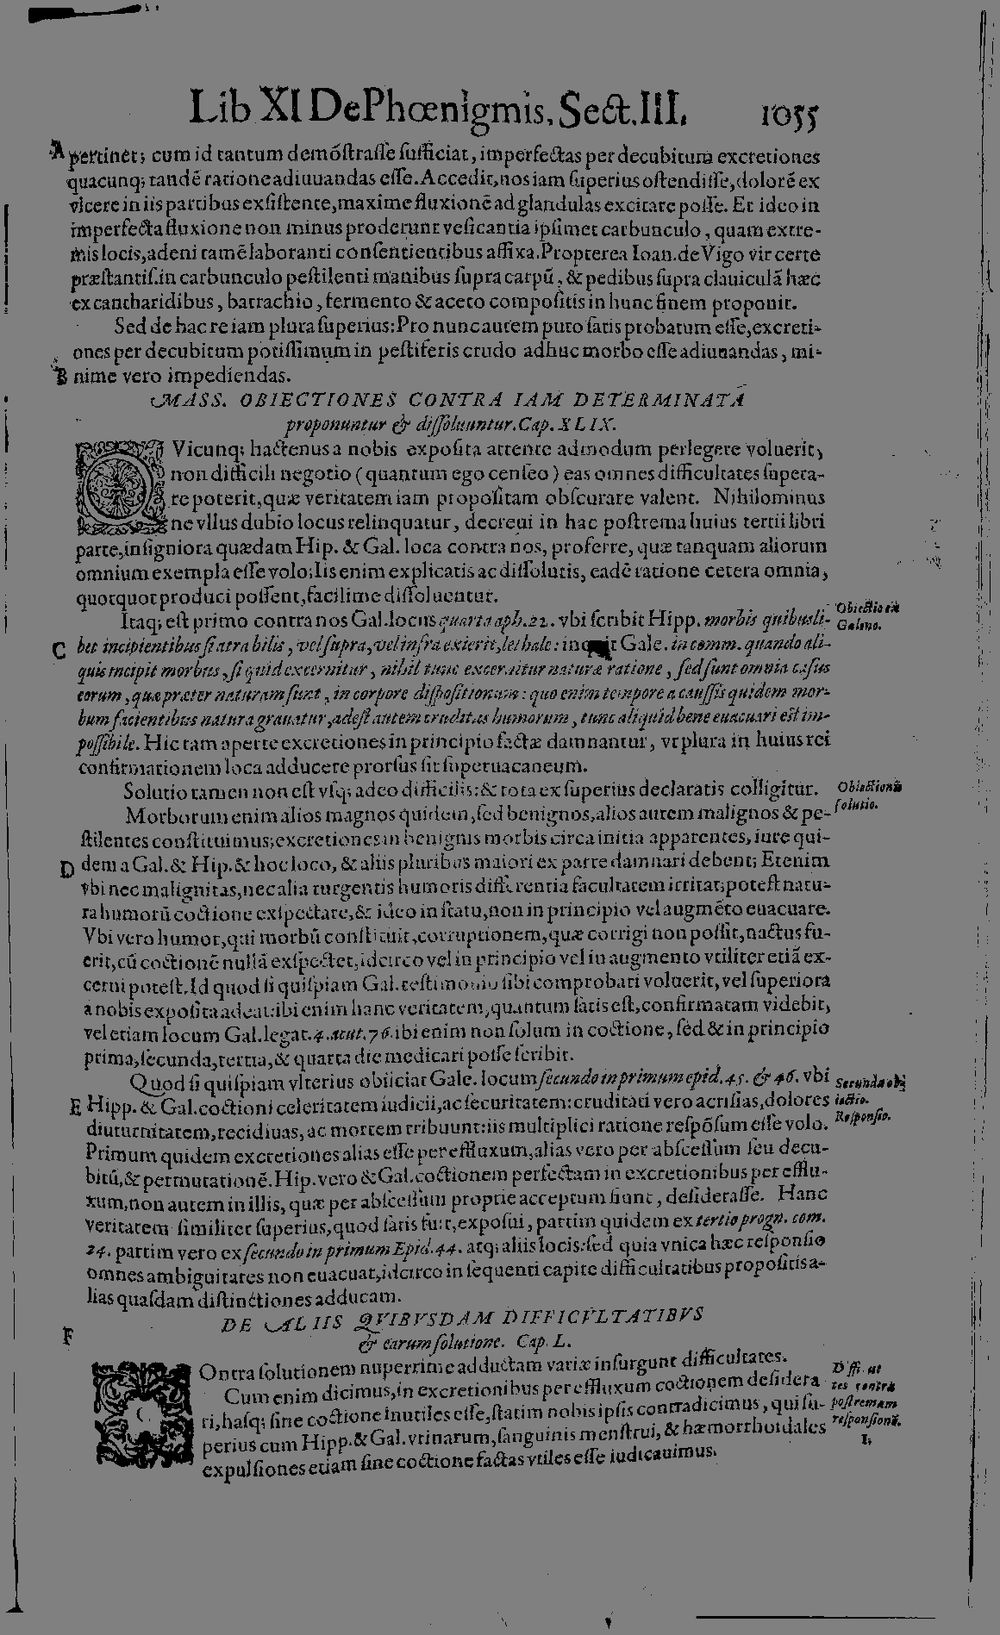 Lib XI DePhœnigmis. Sect. III. 1055
A pertinet; cum id tantum demõſtraſſe ſufficiat, imperfectas per decubitum excretiones
quacunq; tandẽ ratione adiuuandas eſſe. Accedit, nos iam ſuperius oſtendiſſe, dolorẽ ex
vlcere in iis partibus exſiſtente, maxime fluxionẽ ad glandulas excitare poſſe. Et ideo in
imperfecta fluxione non minus proderunt veſicantia ipſimet carbunculo, quam extre-
mis locis, adeni tamẽ laboranti conſentientibus affixa. Propterea Ioan. de Vigo vir certe
præſtantiſ. in carbunculo peſtilenti manibus ſupra carpũ, & pedibus ſupra clauiculã hæc
ex cantharidibus, batrachio, fermento & aceto compoſitis in hunc finem proponit.
Sed de hac re iam plura ſuperius: Pro nunc autem puto ſatis probatum eſſe, excreti-
ones per decubitum potiſſimum in peſtiferis crudo adhuc morbo eſſe adiuuandas, mi-
B nime vero impediendas.
MASS. OBIECTIONES CONTRA IAM DETERMINATA
proponuntur & diſſoluuntur. Cap. XLIX.
QVicunq; hactenus a nobis expoſita attente admodum perlegere voluerit,
non difficili negotio (quantum ego cenſeo) eas omnes difficultates ſupera-
re poterit, quæ veritatem iam propoſitam obſcurare valent. Nihilominus
ne vllus dubio locus relinquatur, decreui in hac poſtrema huius tertii libri
parte, inſigniora quædam Hip. & Gal. loca contra nos, proferre, quæ tanquam aliorum
omnium exempla eſſe volo; Iis enim explicatis ac diſſolutis, eadẽ ratione cetera omnia,
quotquot produci poſſent, facilime diſſoluentur.
Itaq; eſt primo contra nos Gal. locus quarta aph. 22. vbi ſcribit Hipp. morbis quibuſli-
Obiectio ex
Galeno.
C bet incipientibus ſi atra bilis, vel ſupra, vel infra exierit, lethale: inquit Gale. in comm. quando ali-
quis incipit morbus, ſi quid excernitur, nihil tunc excernitur naturæ ratione, ſed ſunt omnia caſus
eorum, quæ præter naturam ſunt, in corpore diſpoſitionum: quo enim tempore a cauſſis quidem mor-
bum facientibus natura grauatur, adeſt autem cruditas humorum, tunc aliquid bene euacuari eſt im-
poſſibile. Hic tam aperte excretiones in principio factæ damnantur, vt plura in huius rei
confirmationem loca adducere prorſus ſit ſuperuacaneum.
Solutio tamen non eſt vſq; adeo difficilis: & tota ex ſuperius declaratis colligitur.
Obiectionis
ſolutio.
Morborum enim alios magnos quidem, ſed benignos, alios autem malignos & pe-
ſtilentes conſtituimus; excretiones in benignis morbis circa initia apparentes, iure qui-
D dem a Gal. & Hip. & hoc loco, & aliis pluribus maiori ex parte damnari debent; Etenim
vbi nec malignitas, nec alia turgentis humoris differentia facultatem irritat; poteſt natu-
ra humorũ coctione exſpectare, & ideo in ſtatu, non in principio vel augmẽto euacuare.
Vbi vero humor, qui morbũ conſtituit, corruptionem, quæ corrigi non poſſit, nactus fu-
erit, cũ coctionẽ nullã exſpectet, idcirco vel in principio vel in augmento vtiliter etiã ex-
cerni poteſt. Id quod ſi quiſpiam Gal. teſtimonio ſibi comprobari voluerit, vel ſuperiora
a nobis expoſita adeat: ibi enim hanc veritatem, quantum ſatis eſt, confirmatam videbit,
vel etiam locum Gal. legat. 4. acut. 76. ibi enim non ſolum in coctione, ſed & in principio
prima, ſecunda, tertia, & quarta die medicari poſſe ſcribit.
Quod ſi quiſpiam vlterius obiiciat Gale. locum ſecundo in primum epid. 45. & 46. vbi
Secunda obi
iectio.
E Hipp. & Gal. coctioni celeritatem iudicii, ac ſecuritatem: cruditati vero acriſias, dolores
Reſponſio.
diuturnitatem, recidiuas, ac mortem tribuunt: iis multiplici ratione reſpõſum eſſe volo.
Primum quidem excretiones alias eſſe per effluxum, alias vero per abſceſſum ſeu decu-
bitũ, & permutationẽ. Hip. vero & Gal. coctionem perfectam in excretionibus per efflu-
xum, non autem in illis, quæ per abſceſſum proprie acceptum fiunt, deſideraſſe. Hanc
veritatem ſimiliter ſuperius, quod ſatis fuit, expoſui, partim quidem ex tertio progn. com.
24. partim vero ex ſecundo in primum Epid. 44. atq; aliis locis: ſed quia vnica hæc reſponſio
omnes ambiguitates non euacuat, idcirco in ſequenti capite difficultatibus propoſitis a-
lias quaſdam diſtinctiones adducam.
DE ALIIS QVIBVSDAM DIFFICVLTATIBVS
F
& earum ſolutione. Cap. L.
COntra ſolutionem nuperrime adductam variæ inſurgunt difficultates.
Cum enim dicimus, in excretionibus per effluxum coctionem deſidera
ri, haſq; ſine coctione inutiles eſſe, ſtatim nobis ipſis contradicimus, qui ſu-
perius cum Hipp. & Gal. vrinarum, ſanguinis menſtrui, & hæmorrhoidales
expulſiones etiam ſine coctione factas vtiles eſſe iudicauimus.
Difficul
tes contra
poſtremam
reſponſionẽ.
I.